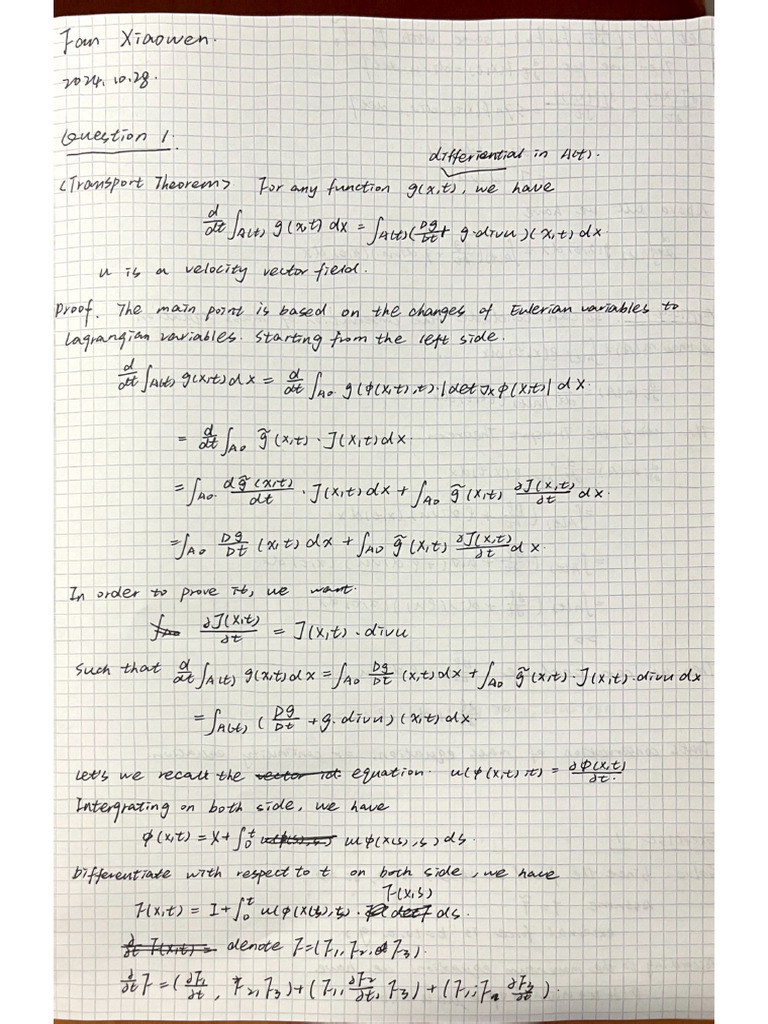 Fan Xiaowen.
2024.10.28.
Question 1.
differiential in A(t).
<Transport Theorem> For any function g(x,t), we have
d/dt ∫_{A(t)} g(x,t) dx = ∫_{A(t)} (Dg/Dt + g·divu)(x,t) dx.
u is a velocity vector field.
Proof. The main point is based on the changes of Eulerian variables to
Lagrangian variables. Starting from the left side.
d/dt ∫_{A(t)} g(x,t) dx = d/dt ∫_{A0} g(ϕ(X,t),t)·|det J_X ϕ(X,t)| dX.
= d/dt ∫_{A0} g̃(X,t)·J(X,t) dX.
= ∫_{A0} dg̃(X,t)/dt · J(X,t) dX + ∫_{A0} g̃(X,t) ∂J(X,t)/∂t dX.
= ∫_{A0} Dg/Dt (X,t) dX + ∫_{A0} g̃(X,t) ∂J(X,t)/∂t dX.
In order to prove it, we want.
∂J(X,t)/∂t = J(X,t)·divu
Such that d/dt ∫_{A(t)} g(x,t) dx = ∫_{A0} Dg/Dt (X,t) dX + ∫_{A0} g̃(X,t)·J(X,t)·divu dX
= ∫_{A(t)} (Dg/Dt + g·divu)(x,t) dx.
Let's we recall the equation. u(ϕ(X,t),t) = ∂ϕ(X,t)/∂t.
Intergrating on both side, we have
ϕ(X,t) = X + ∫_0^t u(ϕ(X(s),s) ds.
Differentiate with respect to t on both side, we have
F(X,t) = I + ∫_0^t u(ϕ(X(s),s)· F(X,s) ds.
denote F = (F1, F2, F3).
∂/∂t F = (∂F1/∂t, F2, F3) + (F1, ∂F2/∂t, F3) + (F1, F2, ∂F3/∂t).